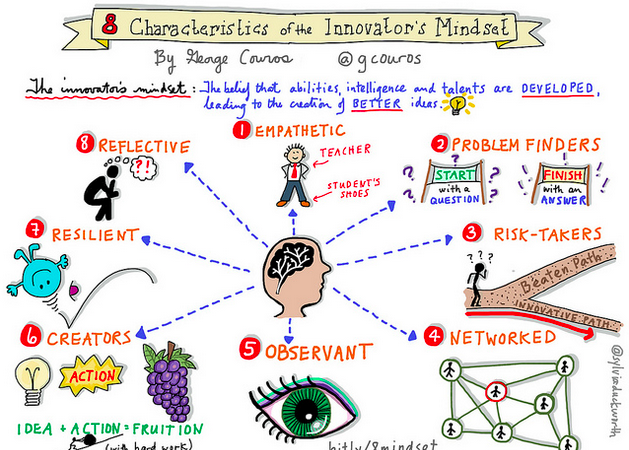 8 Characteristics of the Innovator's Mindset
By George Couros @gcouros
The innovator's mindset: The belief that abilities, intelligence and talents are DEVELOPED,
leading to the creation of BETTER ideas.
1 EMPATHETIC
TEACHER
STUDENT'S
SHOES
2 PROBLEM FINDERS
? ? ? ? ?
START
with a
QUESTION
FINISH
with an
ANSWER
3 RISK-TAKERS
? ? ?
Beaten Path
INNOVATIVE PATH
4 NETWORKED
5 OBSERVANT
6 CREATORS
ACTION
IDEA + ACTION = FRUITION
(with hard work)
7 RESILIENT
8 REFLECTIVE
?!
bit.ly/8mindset
@sylviaduckworth